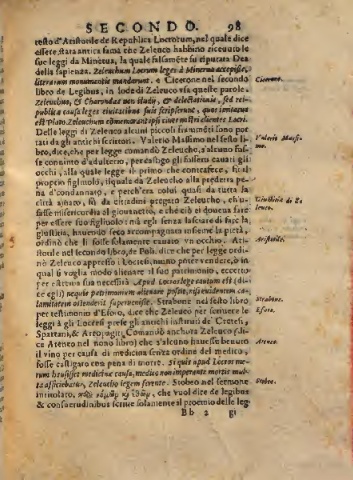 SECONDO. 98
testo d'Aristotile de Republica Locrorum, nel quale dice
essere stata antica fama che Zeleuco habbino riceuuto le
sue leggi da Minerua, la quale fussamẽte fu riputata Dea
della sapienza. Zeleuchum Locrum leges à Minerua accepisse,
literarum monumentis mandarunt. e Cicerone nel secondo
Cicerone.
libro de Legibus, in lode di Zeleuco vsa queste parole.
Zeleuchus, & Charondas non studii, & delectationis, sed rei-
publica causa leges ciuitatibus suis scripserunt, quos imitatus
est Plato. Zeleuchum commemorant ipsi ciues nostri clientes Locri.
Delle leggi di Zeleuco alcuni piccoli frammẽti sono por
tati da gli antichi scrittori. Valerio Massimo nel sesto li-
Valerio Massi-
mo.
bro, dice, che per legge comandò Zeleucho, s'alcuno fus-
se conuinto d'adulterio, per castigo gli fussero cauati gli
occhi, alla quale legge il primo che contrafece, fu il
proprio figliuolo, il quale da Zeleucho alla predetta pe-
na d'condannato, e perch'era colui quasi da tutta la
città amato, fù da cittadini pregato Zeleucho, ch'u-
Giustitia di Ze
leuco.
fasse misericordia al giouanetto, e che ciò ei doueua fare
per essere suo figliuolo; mà egli senza lasciare di fare la
giustitia, hauendo seco accompagnata insieme la pietà,
ordinò che li fosse solamente cauato vn occhio. Ari-
Aristotile.
stotile nel secondo libro, de Poli. dice che per legge ordi-
nò Zeleuco appresso i Locresi, niuno poter vendere, ò in
qual si voglia modo alienare il suo patrimonio, eccetto
per estrema sua necessità. Apud Locros lege cautum est (di-
ce egli) nequis patrimonium alienare possit, nisi euidentem ca-
lamitatem ostenderit superuenisse. Strabone nel sesto libro
Strabone.
per testimonio d'Eforo, dice che Zeleuco per scriuere le
Eforo.
leggi à gli Locresi prese gli antichi instituti de' Cretesi,
Spartani, & Areopagiti; Comandò anchora Zeleuco (di-
ce Ateneo nel nono libro) che s'alcuno hauesse beuuto
Ateneo.
il vino per causa di medicina senza ordine del medico,
fosse castigato con pena di morte. Si quis apud Locros me-
rum hausisset medicinæ causa, medico non imperante mortis mul-
ta afficiebatur, Zeleucho legem ferente. Stobeo nel sermone
Stobeo.
intitolato, che vuol dice de legibus
& consuetudinibus scriue solamente al proemio delle leg
B b 2 gi